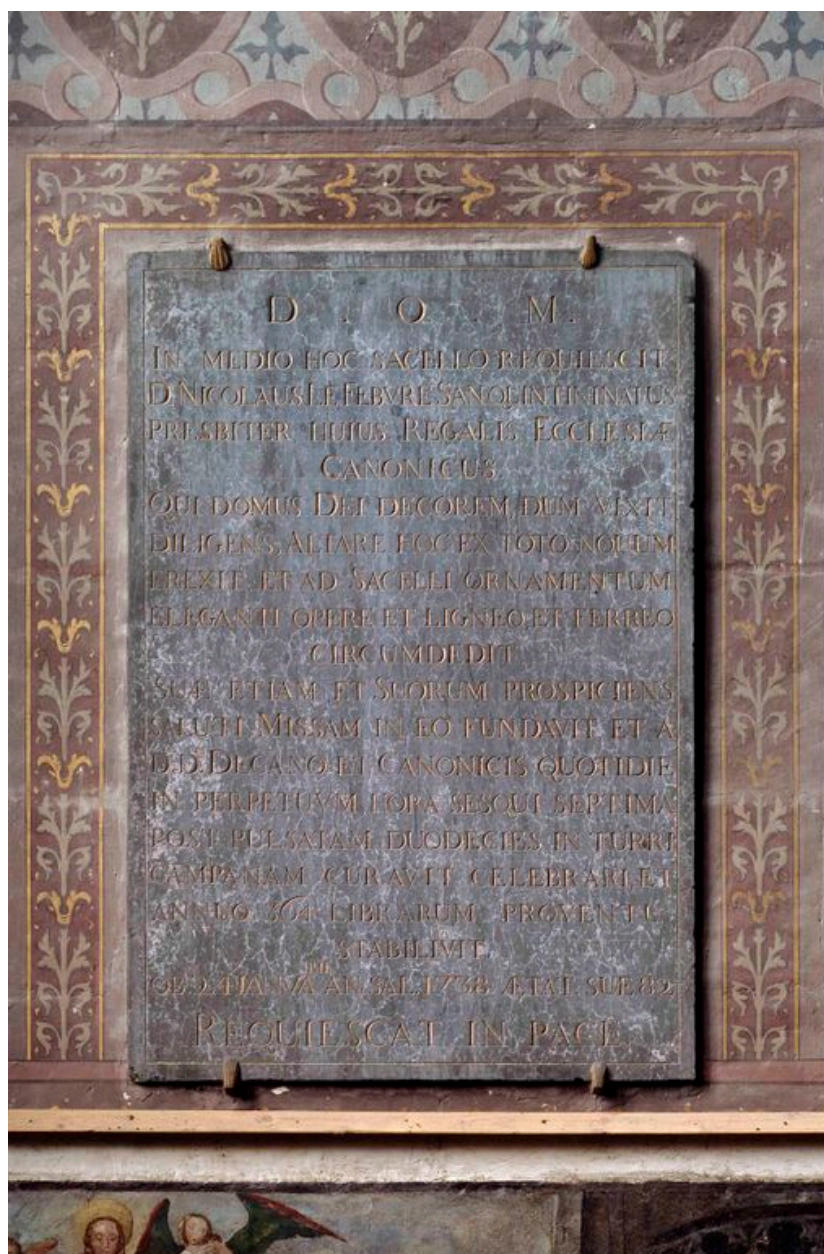 D . O . M .
IN MEDIO HOC SACELLO REQUIESCIT
D. NICOLAUS LE FEBVRE SANQUINTINI NATUS
PRESBITER HUIUS REGALIS ECCLESIÆ
CANONICUS
QUI DOMUS DEI DECOREM, DUM VIXIT
DILIGENS, ALTARE HOC EX TOTO NOVUM
EREXIT ET AD SACELLI ORNAMENTUM
ELEGANTI OPERE ET LIGNEO ET FERREO
CIRCUMDEDIT
SUÆ ETIAM ET SUORUM PROSPICIENS
SALUTI MISSAM IN EO FUNDAVIT ET A
D.D. DECANO ET CANONICIS QUOTIDIE
IN PERPETUVM HORA SESQUI SEPTIMA
POST PULSATAM DUODECIES IN TURRI
CAMPANAM CURAVIT CELEBRARI, ET
ANNUO 364 LIBRARUM PROVENTU
STABILIVIT.
OB 24 JANUA AN. SAL. 1738 ÆTAT SUÆ 82
REQUIESCAT IN PACE